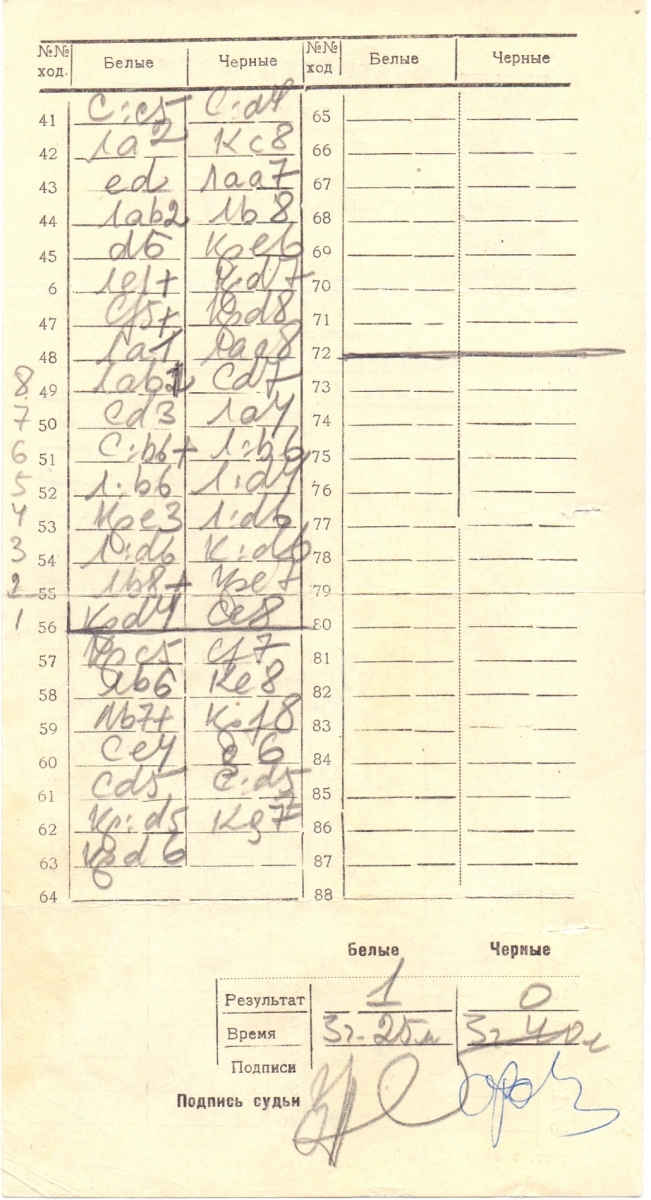 №№ ход. Белые Черные №№ ход Белые Черные
41 С:c5 С:d4 65
42 Ла2 Кс8 66
43 ed Лаа7 67
44 Лаb2 Лb8 68
45 d6 Кре6 69
6 Ле1+ Кр:d7+ 70
47 Сf5+ Крd8 71
48 Ла1 Лаа8 72
8 49 Лаb1 Сd7 73
7 50 Сd3 Ла4 74
6 51 С:b6+ Л:b6 75
5 52 Л:b6 Л:d4 76
4 53 Кре3 Л:d6 77
3 54 Л:d6 К:d6 78
2 55 Лb8+ Кре7 79
1 56 Крd4 Се8 80
57 Крс5 Сf7 81
58 Лb6 Ке8 82
59 Лb7+ Крf8 83
60 Се4 g6 84
61 Сd5 С:d5 85
62 Кр:d5 Кg7 86
63 Крd6 87
64 88
Белые Черные
Результат 1 0
Время 3ч.25м 3ч.40м
Подписи
Подпись судьи